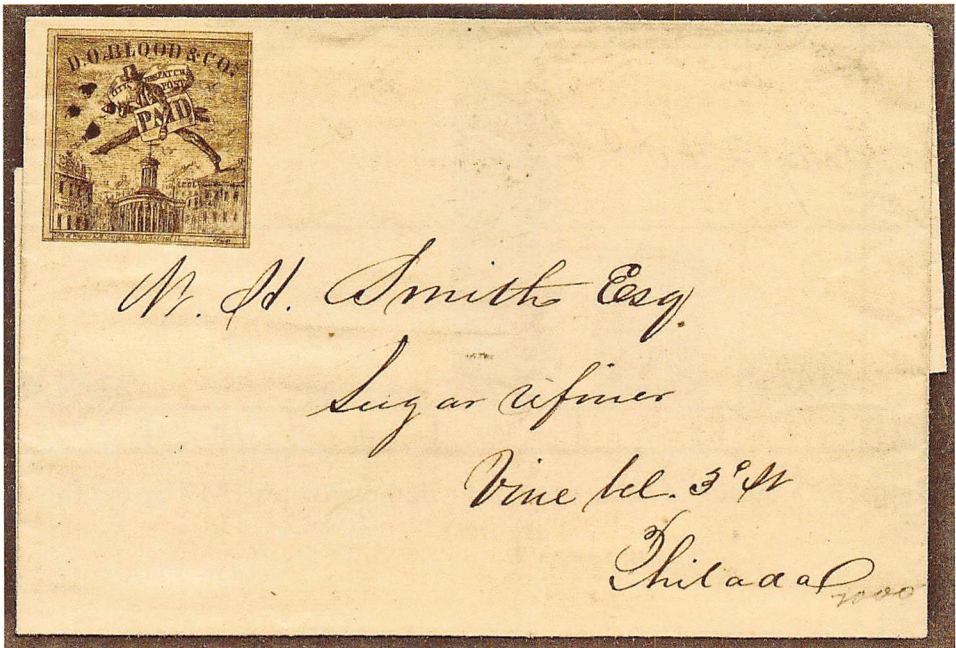 D.O.BLOOD & CO'S
CITY DESPATCH
POST
PAID
W. H. Smith Esq.
Sugar refiner
Vine bel. 3ᵈ St
Philada